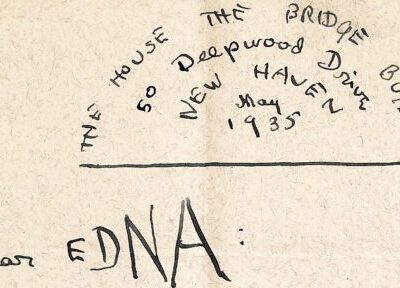 THE HOUSE THE BRIDGE BUI
50 Deepwood Drive
NEW HAVEN
May
1935
ar EDNA: